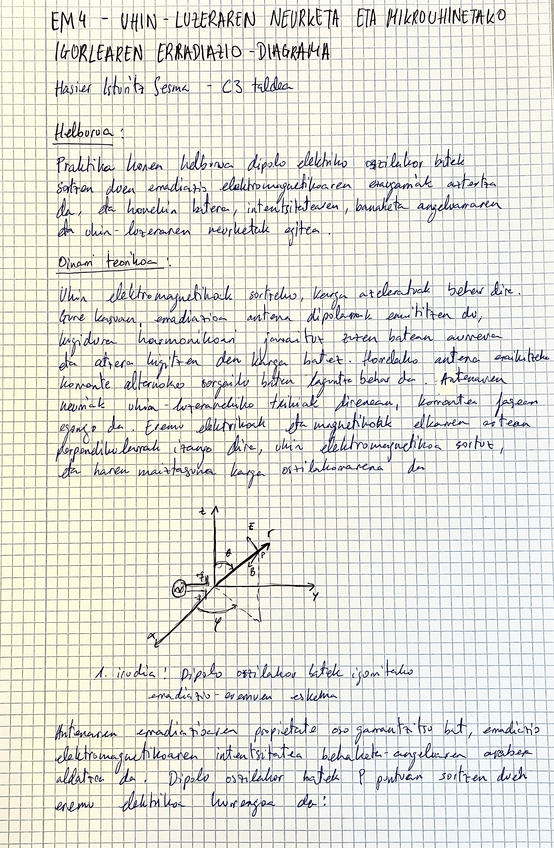 EM4 - UHIN-LUZERAREN NEURKETA ETA MIKROUHINETAKO
IGORLEAREN ERRADIAZIO-DIAGRAMA
Hasier Isturitz Sesma - C3 taldea
Helburua:
Praktika honen helburua dipolo elektriko oszilakor batek
sortzen duen erradiazio elektromagnetikoaren ezaugarriak aztertzea
da, eta honekin batera, intentsitatearen, banaketa angeluarraren
eta uhin-luzeraren neurketak egitea.
Oinarri teorikoa:
Uhin elektromagnetikoak sortzeko, karga azeleratuak behar dira.
Gure kasuan, erradiazioa antena dipolarrak emititzen du,
higidura harmonikoari jarraituz zuzen batean aurrera
eta atzera higitzen den karga batez. Horrelako antena eraikitzeko
korronte alternoko sorgailu baten laguntza behar da. Antenaren
neurriak uhin-luzeraren txikiak direnean, korrontea fasean
egongo da. Eremu elektrikoak eta magnetikoak elkarren artean
perpendikularrak izango dira, uhin elektromagnetikoa sortuz,
eta haren maiztasuna karga oszilakorrarena da
z
E
r
θ
P
B
y
φ
x
1. irudia: Dipolo oszilakor batek igorritako
erradiazio-eremuen eskema
Antenaren erradiazioaren propietate oso garrantzitsu bat, erradiazio
elektromagnetikoaren intentsitatea behaketa-angeluaren arabera
aldatzea da. Dipolo oszilakor batek P puntuan sortzen duen
eremu elektrikoa hurrengoa da: